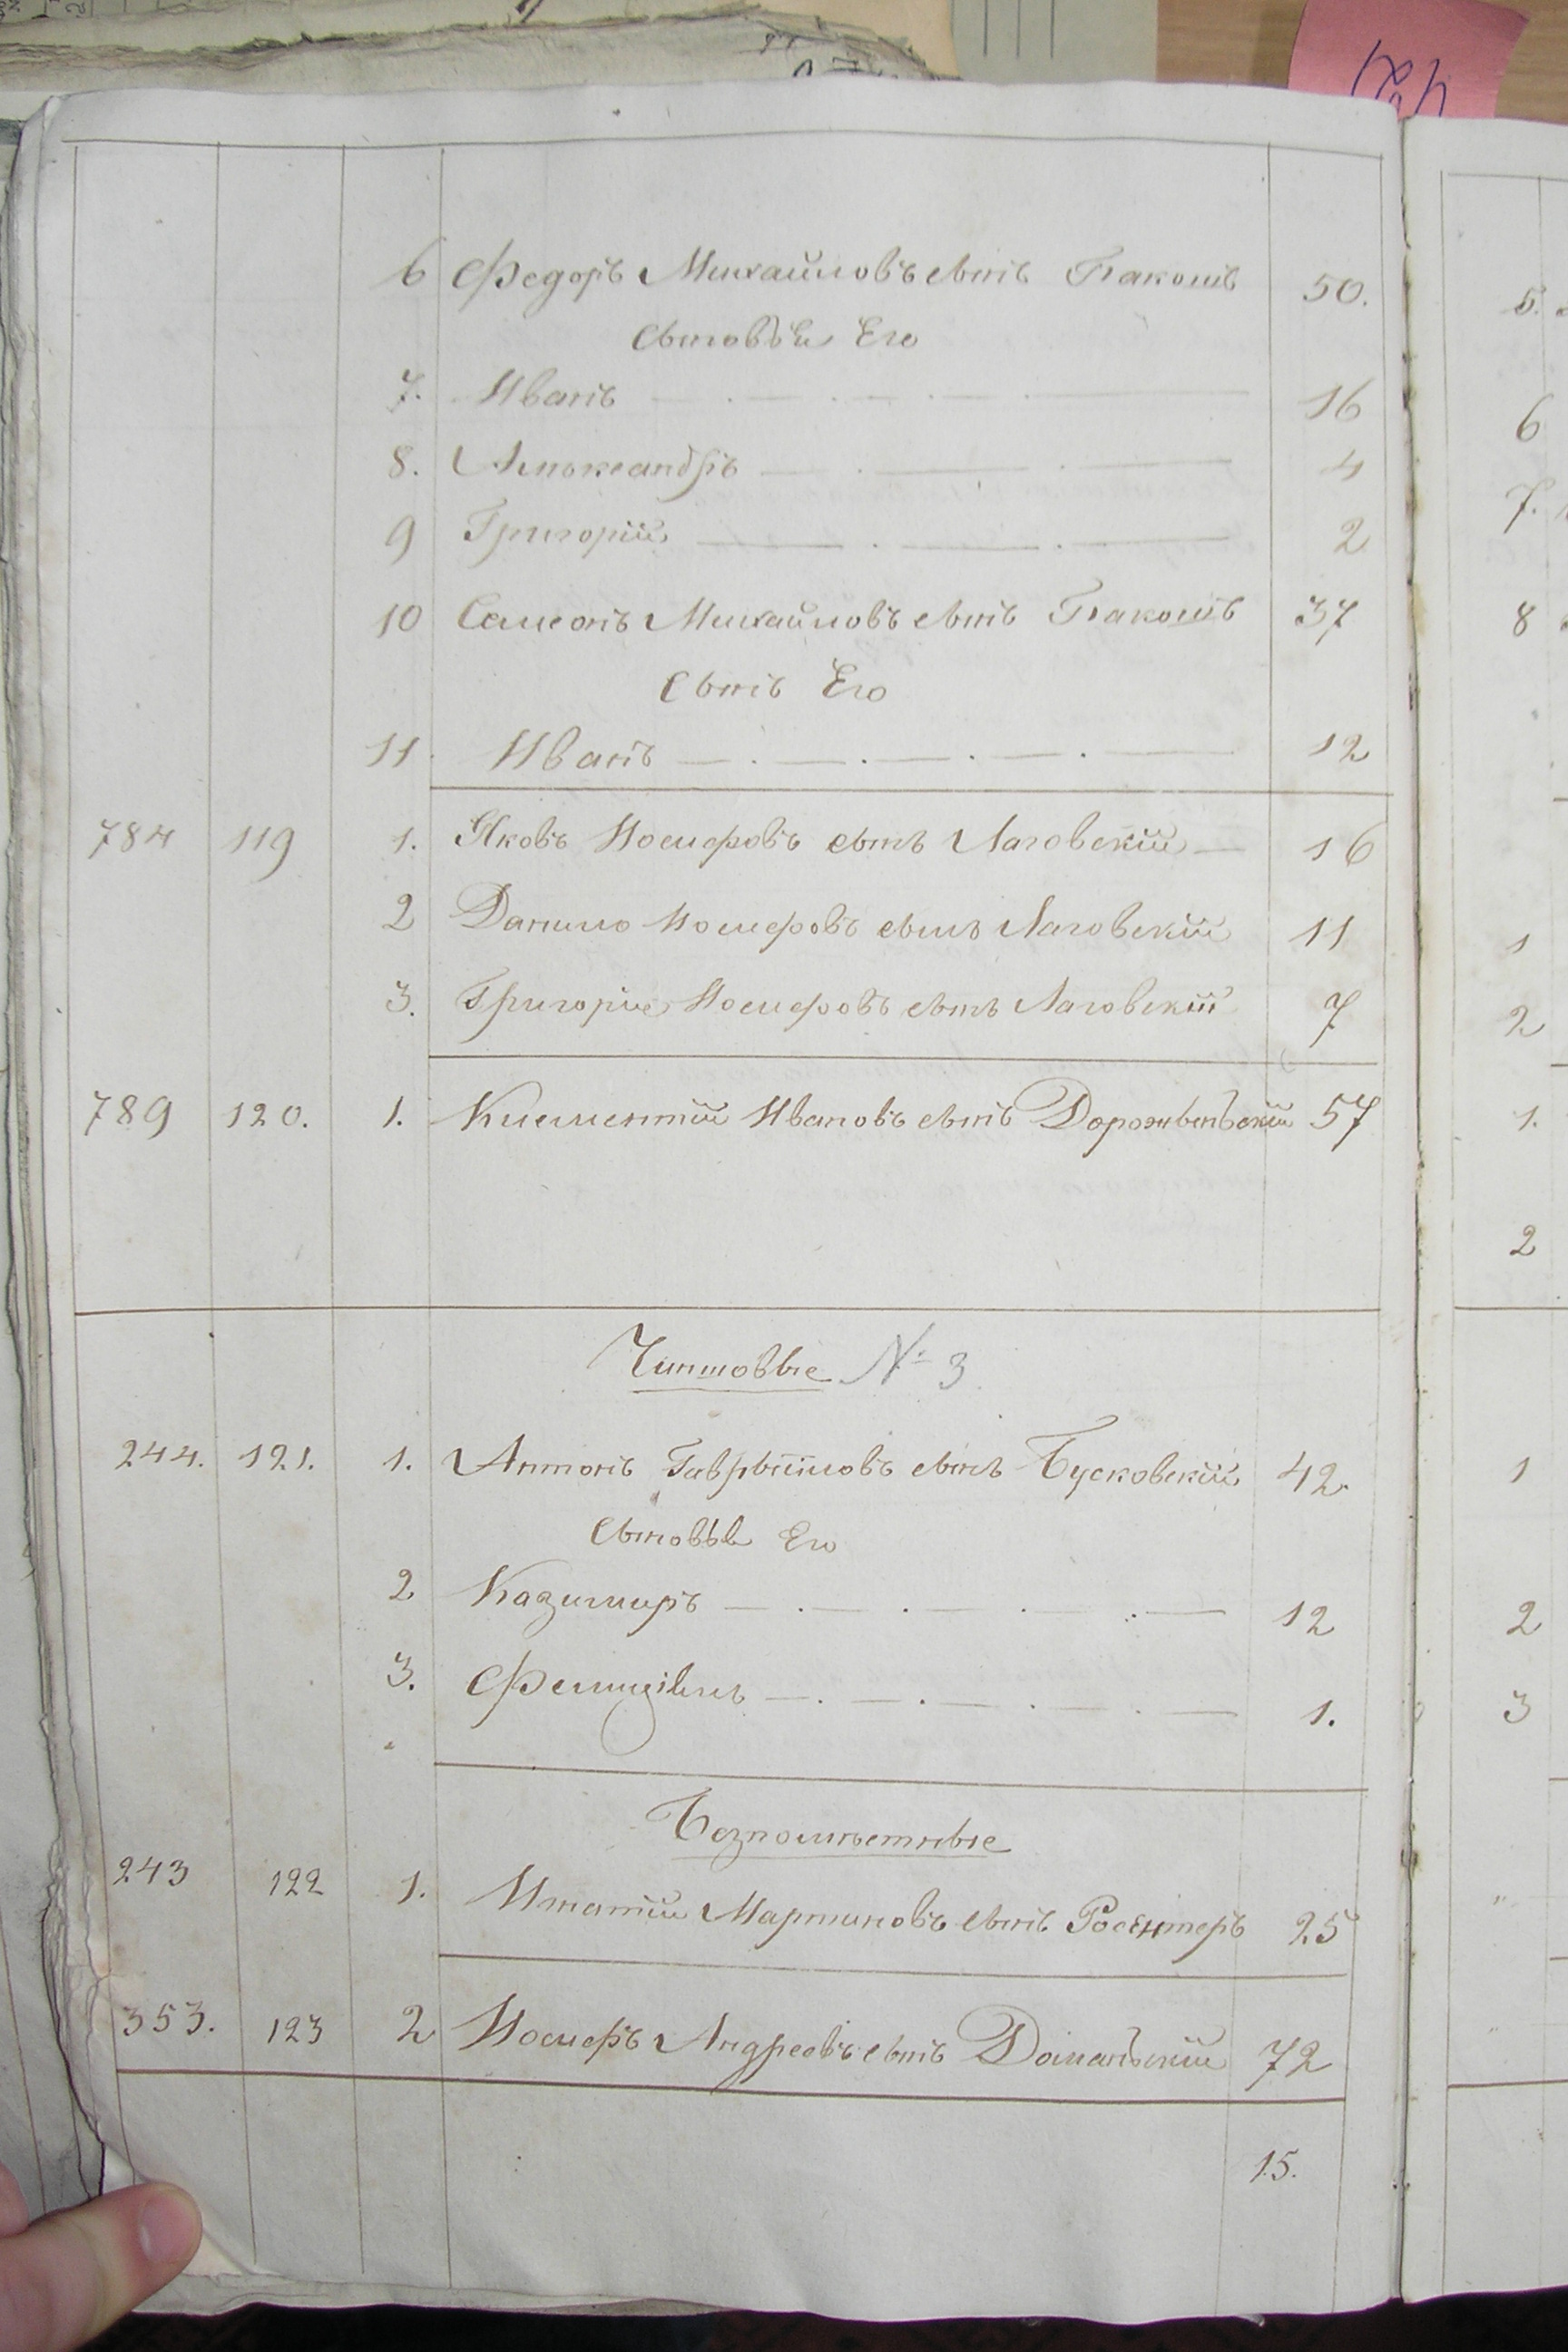 6 Федоръ Михайловъ сынъ Бакошъ 50.
Сыновьи Его
7. Иванъ 16
8. Александръ 4
9 Григорій 2
10 Самсонъ Михайловъ сынъ Бакошъ 37
Сынъ Его
11 Иванъ 12
784 119 1. Яковъ Иосифовъ сынъ Лаговскій 16
2 Данило Иосифовъ сынъ Лаговскій 11
3. Григорій Иосифовъ сынъ Лаговскій 7
789 120. 1. Климентій Ивановъ сынъ Дорожинскій 57
Чиншовые № 3
244. 121. 1. Антонъ Гаврыиловъ сынъ Бусковскій 42.
Сыновья Его
2 Казимиръ 12
3. Фелиціянъ 1.
Безпоместные
243 122 1. Игнатій Мартиновъ сынъ Росентеръ 25
353. 123 2 Иосифъ Андреевъ сынъ Доманскій 72
15.
5.
6
7.
8
1
2
1.
2
1
2
3